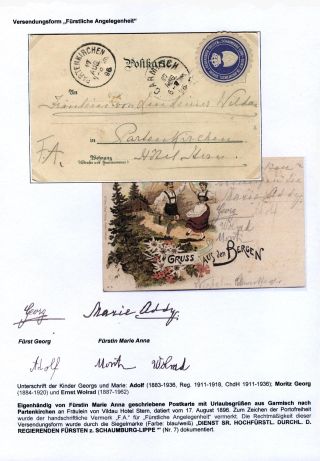 Versendungsform „Fürstliche Angelegenheit"
PARTENKIRCHEN
Postkarte
GARMISCH
An
Fräulein von
Partenkirchen
F.A.
Wohnung
Hôtel Stern
Marie Addy.
Georg
Wolrad
Moritz
GRUSS AUS DEN BERGEN
Georg Marie Addy.
Fürst Georg Fürstin Marie Anna
Adolf Moritz Wolrad
Unterschrift der Kinder Georgs und Marie: Adolf (1883-1936, Reg. 1911-1918, ChdH 1911-1936); Moritz Georg
(1884-1920) und Ernst Wolrad (1887-1962)
Eigenhändig von Fürstin Marie Anna geschriebene Postkarte mit Urlaubsgrüßen aus Garmisch nach
Partenkirchen an Fräulein von Vildau Hotel Stern, datiert vom 17. August 1898. Zum Zeichen der Portofreiheit
wurde der handschriftliche Vermerk „F.A." für „Fürstliche Angelegenheit" vermerkt. Die Rechtmäßigkeit dieser
Versendungsform wurde durch die Siegelmarke (Farbe: blau/weiß) „DIENST SR. HOCHFÜRSTL. DURCHL. D.
REGIERENDEN FÜRSTEN z. SCHAUMBURG-LIPPE *" (Nr. 7) dokumentiert.